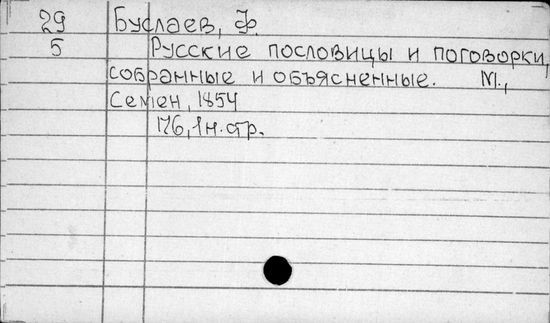 29 Буслаев, Ф.
5 Русские пословицы и поговорки,
собранные и объясненные. М.,
Семен, 1854
176, 1 н. стр.